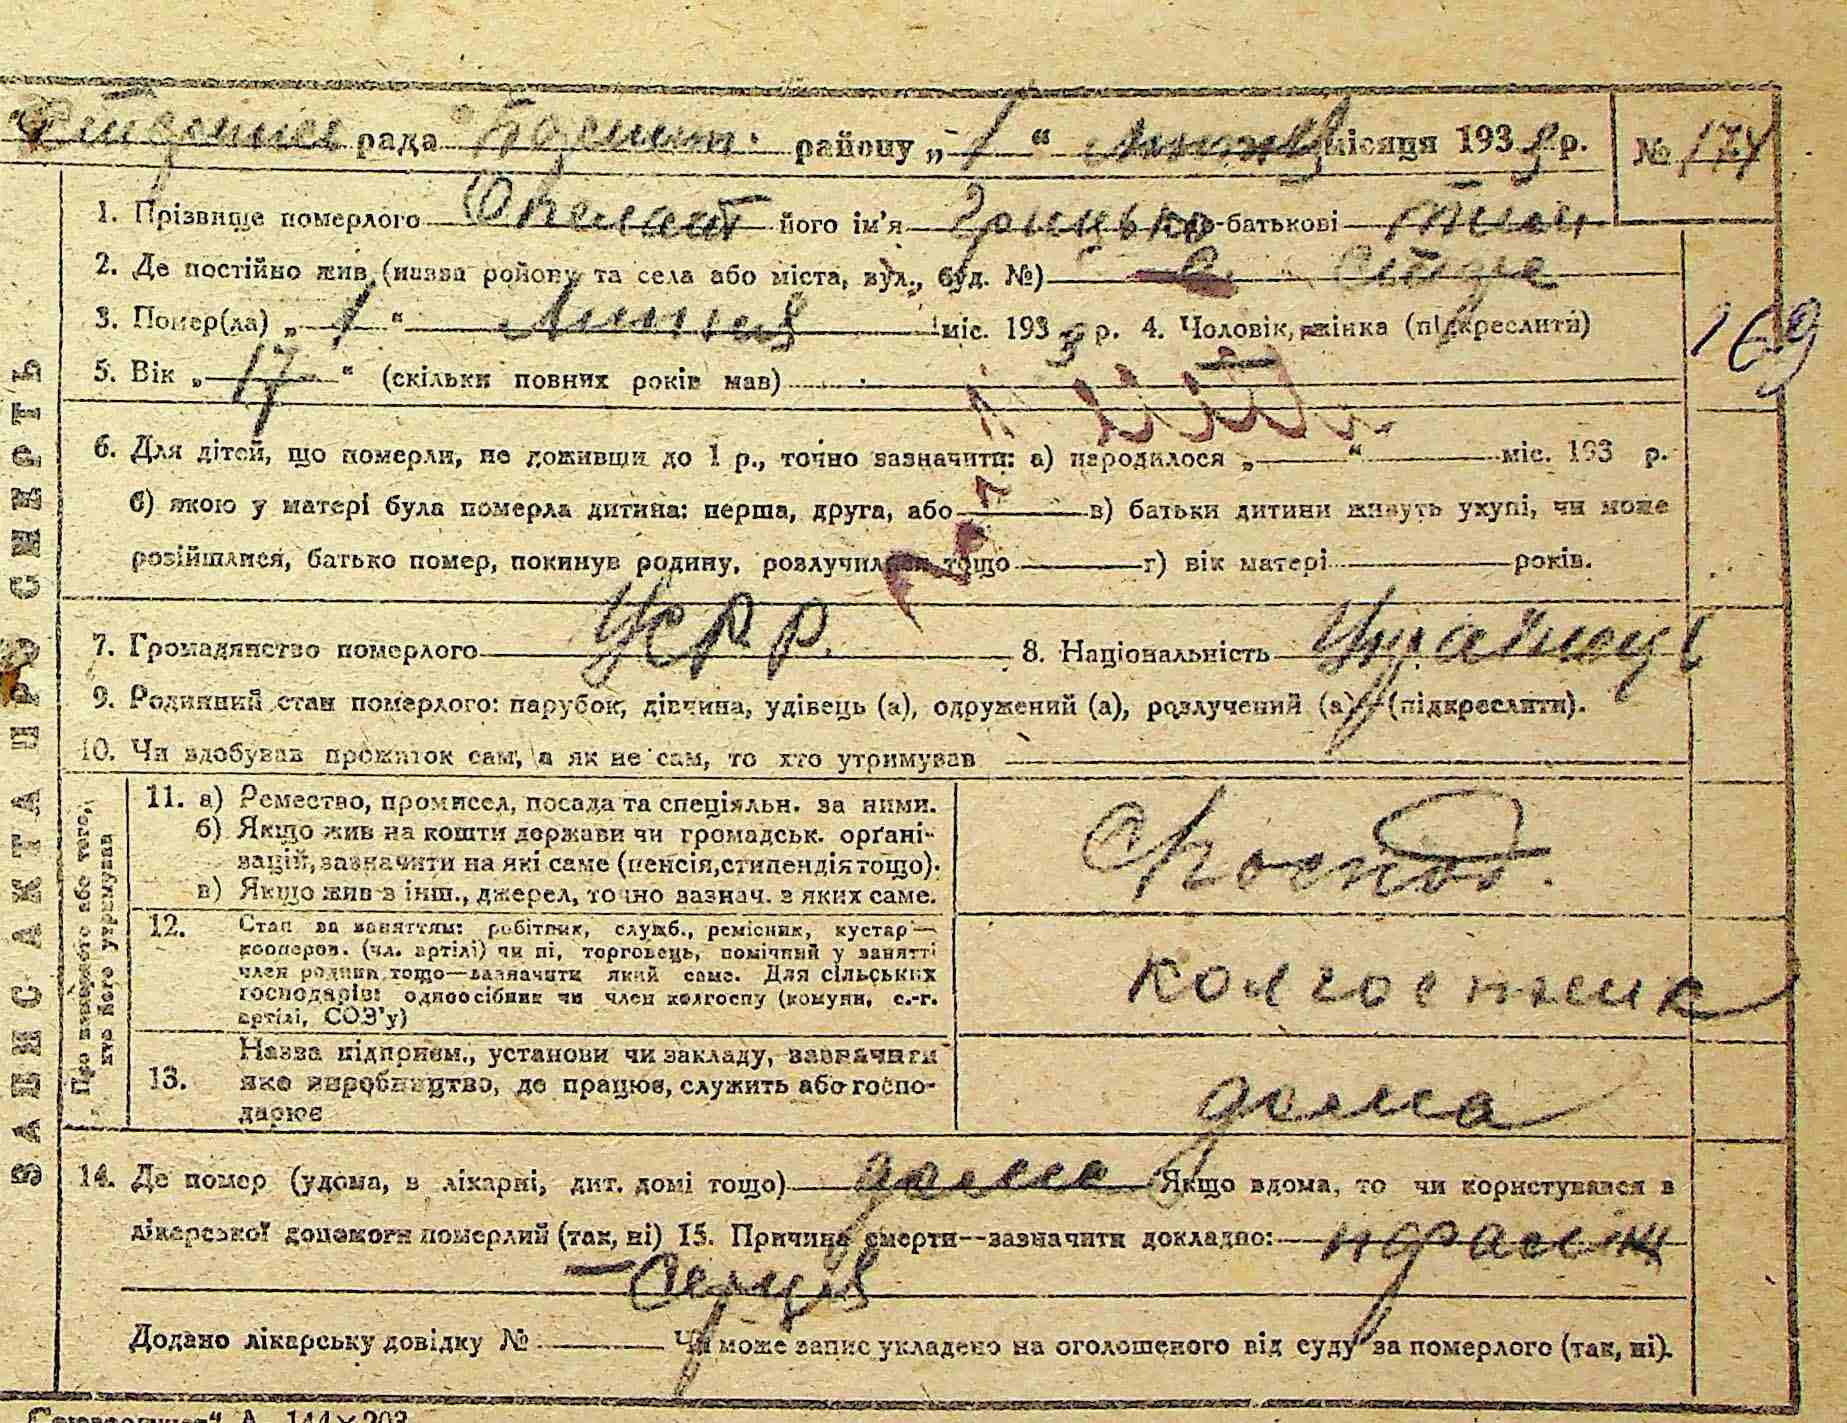 рада район у „ 1 “ місяця 1933 р. № 174
1. Прізвище померлого його ім'я Грицько по-батькові
2. Де постійно жив (назва ройону та села або міста, вул., буд. №) с.
3. Помер(ла) „ 1 “ Липня міс. 1933 р. 4. Чоловік, жінка (підкреслити)
169
5. Вік „ 17 “ (скільки повних років мав)
6. Для дітей, що померли, не доживши до 1 р., точно зазначити: а) народилося „ “ міс. 193 р.
б) якою у матері була померла дитина: перша, друга, або в) батьки дитини живуть укупі, чи може
розійшлися, батько помер, покинув родину, розлучилися тощо г) вік матері років.
7. Громадянство померлого УСРР. 8. Національність
9. Родинний стан померлого: парубок, дівчина, удівець (а), одружений (а), розлучений (а) (підкреслити).
10. Чи здобував прожиток сам, а як не сам, то хто утримував
ЗАПИС АКТА ПРО СМЕРТЬ
Про померлого або того, хто його утримував
11. а) Ремество, промисел, посада та спеціяльн. за ними.
б) Якщо жив на кошти держави чи громадськ. орґані-
зацій, зазначити на які саме (пенсія, стипендія тощо).
в) Якщо жив з інш., джерел, точно зазнач. з яких саме.
12. Стан за заняттям: робітник, служб., ремісник, кустар—
кооперов. (чл. артілі) чи ні, торговець, помічний у занятті
член родини тощо—зазначити який саме. Для сільських
господарів: одноосібник чи член колгоспу (комуни, с.-г.
артілі, СОЗ'у)
колгоспник
13. Назва підприєм., установи чи закладу, зазначити
яке виробництво, де працює, служить або госпо-
дарює
дома
14. Де помер (удома, в лікарні, дит. домі тощо) дома Якщо вдома, то чи користувався в
лікарської допомоги померлий (так, ні) 15. Причина смерти—зазначити докладно:
серця
Додано лікарську довідку № Чи може запис укладено на оголошеного від суду за померлого (так, ні).
А. 144×203